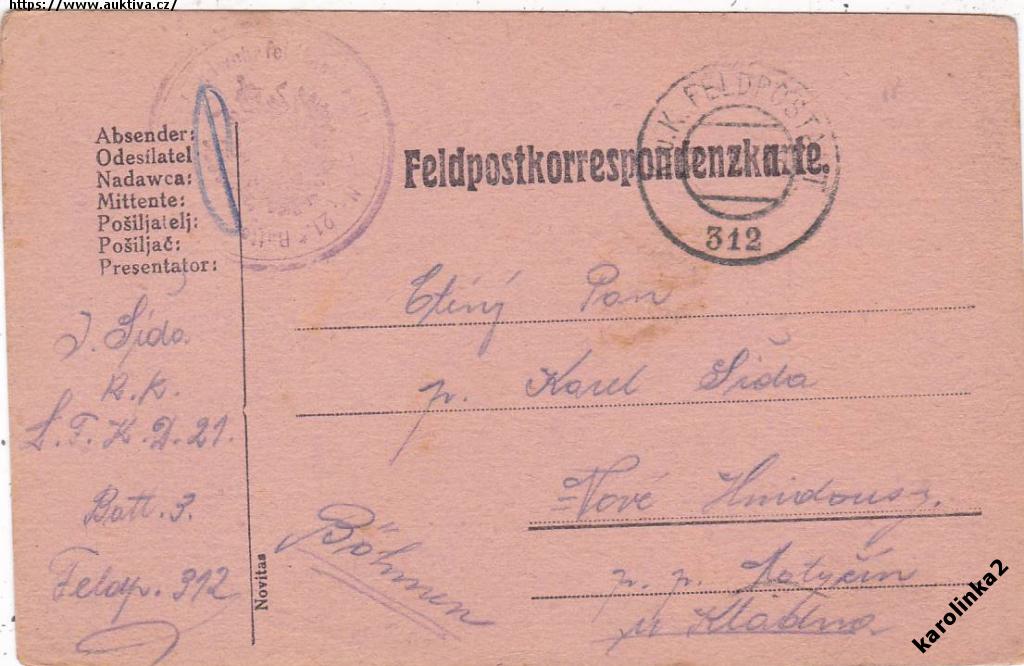 https://www.auktiva.cz/
Absender:
Odesílatel
Nadawca:
Mittente:
Pošiljatelj:
Pošiljač:
Presentator:
Feldpostkorrespondenzkarte.
K.u.K. FELDPOSTAMT
312
J. Šída
k.k.
L.F.K.D.21.
Batt. 3.
Feldp. 312
Ctěný Pan
p. Karel Šída
Nové Hnidousy.
Böhmen
p. p. Motyčín
u Kladna
Novitas
karolinka2